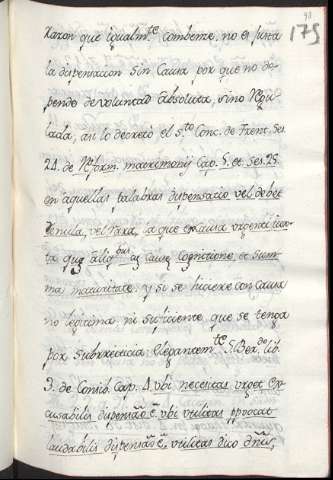 175
razon que igualm.te combence, no es justa
la dispensacion sin Causa por que no de-
pende de voluntad absoluta, sino Regu-
lada, asi lo decretó el s.to Conc. de Trent. Ses
24. de Reform. matrimonij Cap. 5. et Ses. 25.
en aquellas palabras dispensacio vel debet
denula, vel rara, la que ex causa urgenti
aliq.bus causę cognitione, et sum-
ma maturitate. y si se hiciere con Causa
no legitima ni suficiente que se tenga
por subrreticia elegantem.te S. Ber.do lib.
3. de Consid. Cap. 4. vbi necesitas urget ex-
cusabilis dispensaō ē, vbi vtilitas ꝓvocat
laudabilis dispensaō ē, vtilitas dico